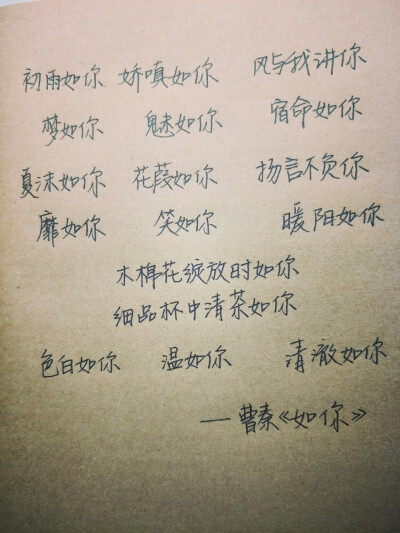 初雨如你 娇嗔如你 风与我讲你
梦如你 魅如你 宿命如你
夏沫如你 花葭如你 扬言不负你
靡如你 笑如你 暖阳如你
木棉花绽放时如你
细品杯中清茶如你
色白如你 温如你 清澈如你
——曹秦《如你》